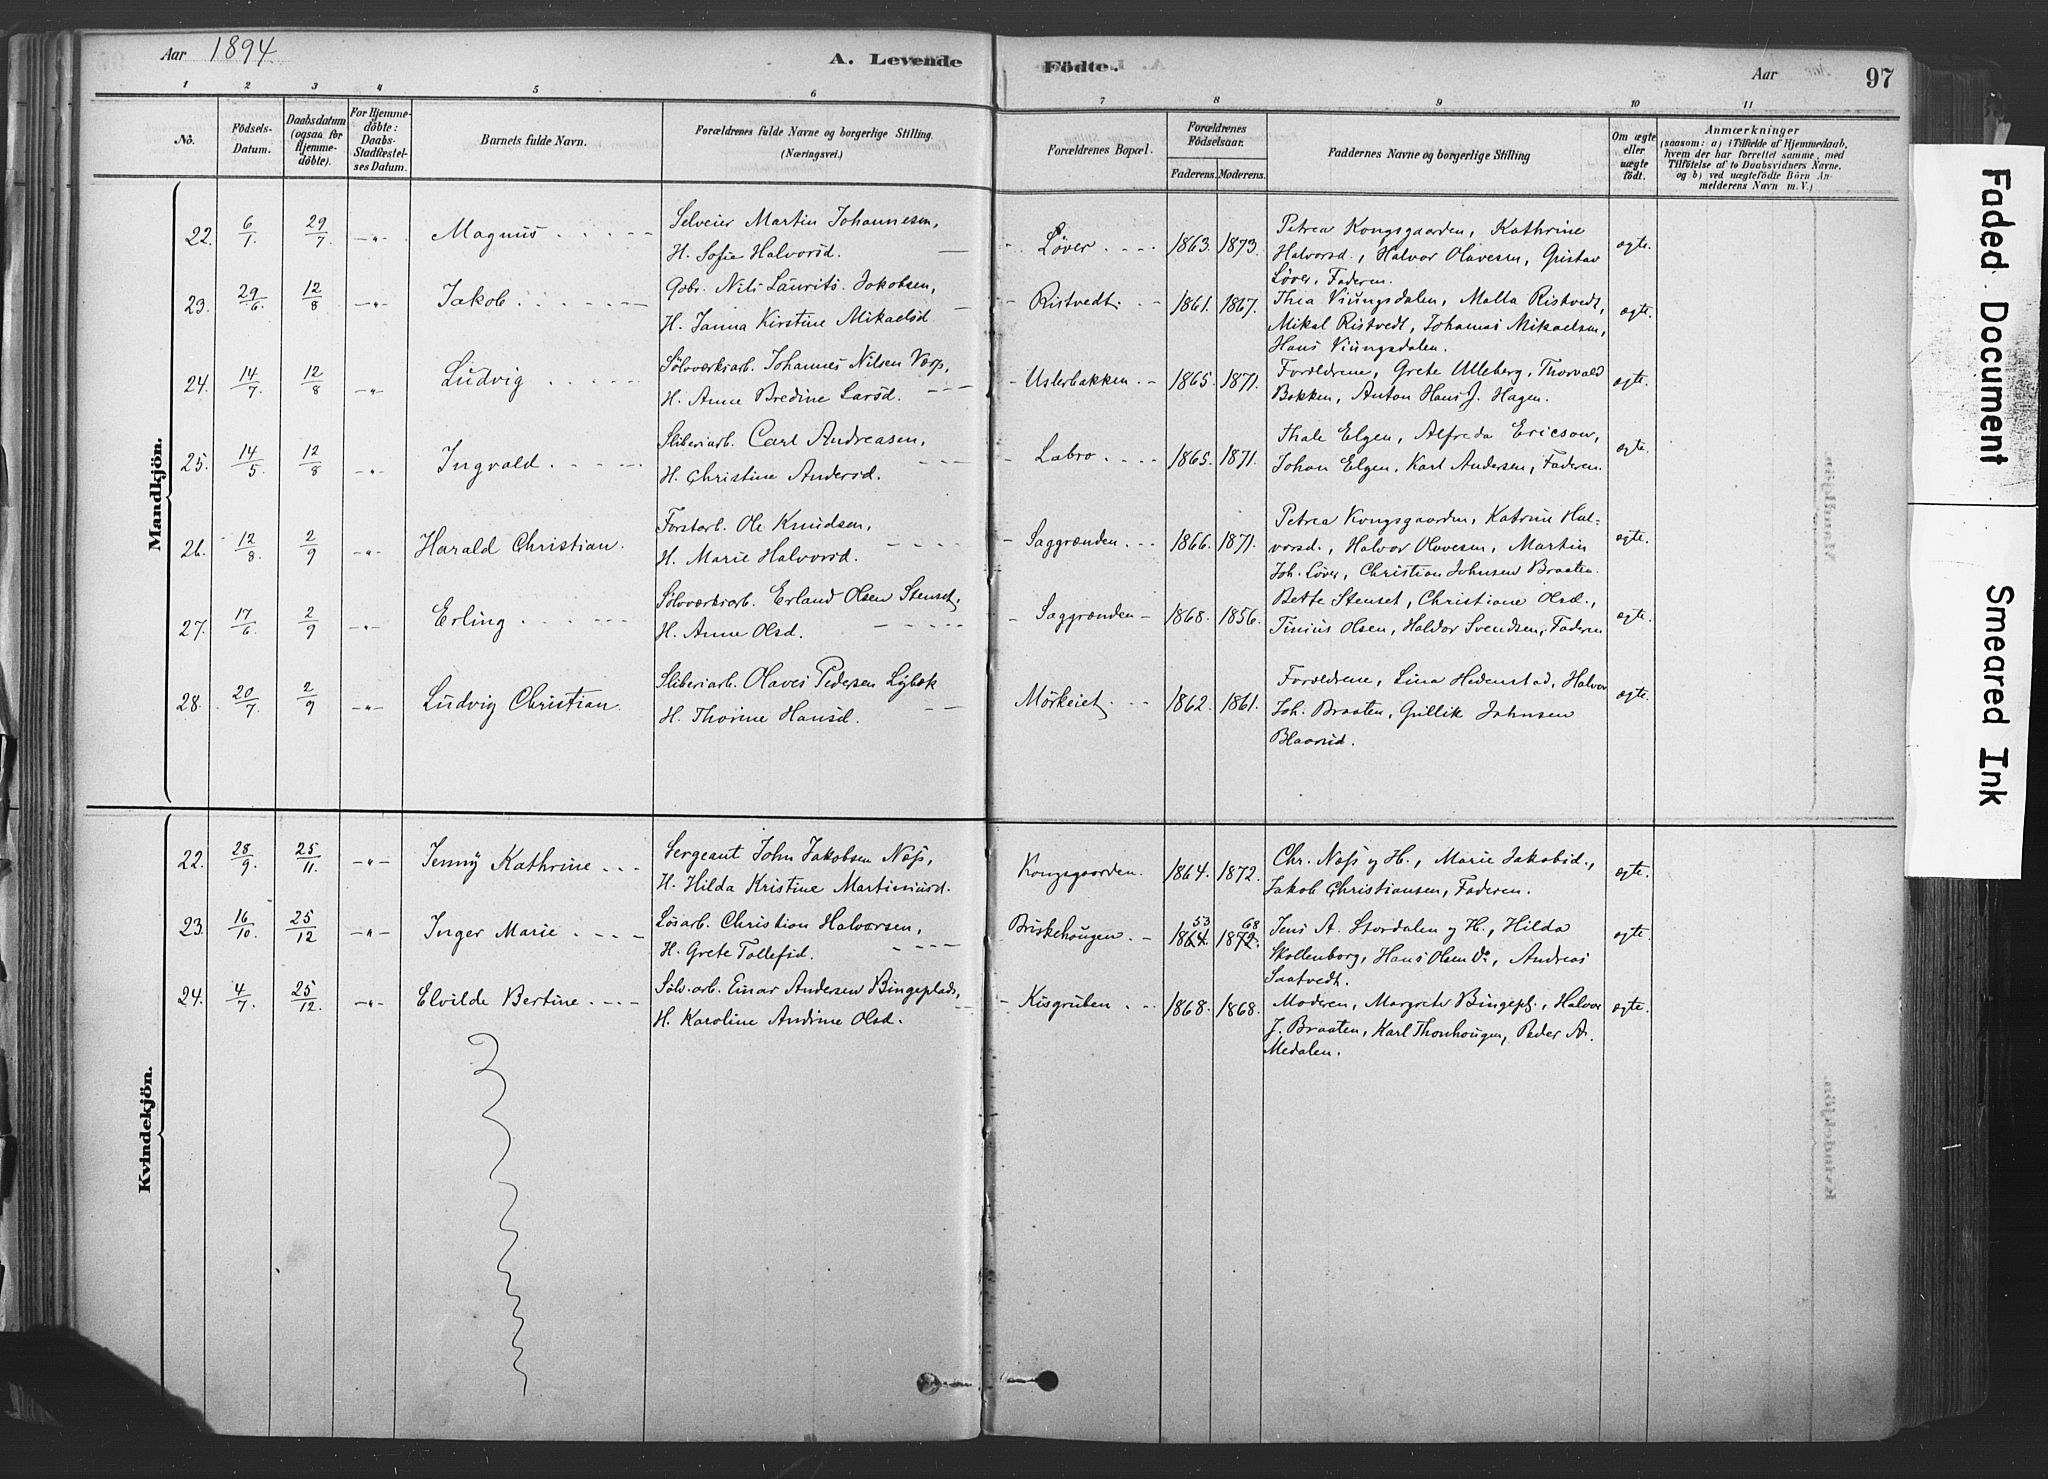 Aar 1894
A. Levende
Födte.
Aar
97
1 2 3 4 5 6 7 8 9 10 11
No.
Födsels-
Datum.
Daabsdatum
(ogsaa for
Hjemme-
döbte).
For Hjemme-
döbte:
Daabs-
Stadfæstel-
ses Datum.
Barnets fulde Navn.
Forældrenes fulde Navne og borgerlige Stilling.
(Næringsvei.)
Forældrenes Bopæl.
Forældrenes
Födselsaar.
Faderens. Moderens.
Faddernes Navne og borgerlige Stilling
Om ægte
eller
uægte
födt.
Anmærkninger
(saasom: a) i Tilfælde af Hjemmedaab,
hvem der har forrettet samme, med
Tilföielse af to Daabsvidners Navne,
og b) ved uægtefödte Börn An-
melderens Navn m. V.)
Mandkjön.
22. 6/1 29/7 -"- Magnus
Selveier Martin Johannesen,
H. Sofie Halvorsd.
Løver 1863. 1873.
Petrea Kongsgaarden, Kathrine
Halvorsd., Halvor Olavesen, Gustav
Løver, Faderen.
ægte.
23. 29/6 12/8 -"- Jakob
Gbr. Nils Laurits Jakobsen,
H. Janna Kirstine Mikaelsd
Ristvedt 1861. 1867.
Thea Viungsdalen, Malla Ristvedt,
Mikal Ristvedt, Johannes Mikaelsen,
Hans Viungsdalen.
ægte.
24. 14/7 12/8 -"- Ludvig
Sölvværksarb. Johannes Nilsen Værp,
H. Anne Bredine Larsd.
Usterbakken 1865. 1871.
Forældrene, Grete Ulleberg, Thorvald
Bakken, Anton Hans J. Hagen.
ægte.
25. 14/5 12/8 -"- Ingvald
Sliberiarb. Carl Andreasen,
H. Christine Andersd.
Labro 1865. 1871.
Thale Elgen, Alfreda Ericson,
Johan Elgen, Karl Andersen, Faderen.
ægte.
26. 12/8 2/9 -"- Harald Christian.
Forstarb. Ole Knudsen,
H. Marie Halvorsd.
Saggrænden 1866. 1871.
Petrea Kongsgaarden, Katrine Hal-
vorsd., Halvor Olavesen, Martin
Joh. Løver, Christian Johnsen Braaten.
ægte.
27. 17/6 2/9 -"- Erling
Sölvværksarb. Erland Olsen Stenset,
H. Anne Olsd.
Saggrænden 1868. 1856.
Bette Stenset, Christiane Olsd.,
Tinius Olsen, Haldor Svendsen, Faderen
ægte.
28. 20/7 2/9 -"- Ludvig Christian.
Sliberiarb. Olaves Pedersen Lybæk
H. Thorine Hansd.
Mörkeiet 1862. 1861.
Forældrene, Lina Hedenstad, Halvor
Joh. Braaten, Gullik Johnsen
Blaarud.
ægte.
Kvindekjön.
22. 28/9 25/11. -"- Jenny Kathrine
Sergeant John Jakobsen Næss,
H. Hilda Kristine Martiniusd.
Kongsgaarden. 1864. 1872.
Chr. Næss og H., Marie Jakobsd.,
Jakob Christiansen, Faderen.
ægte.
23. 16/10. 25/12 -"- Inger Marie
Løsarb. Christian Halvorsen,
H. Grete Tollefsd.
Briskehougen 53 68
1864. 1872.
Jens A. Stordalen og H., Hilda
Skollenborg, Hans Olsen Do, Andreas
Saatvedt.
ægte.
24. 4/7 25/12. -"- Elvilde Bertine
Sölv.arb. Einar Andersen Bingeplads,
H. Karoline Andine Olsd.
Kisgruben 1868. 1868.
Moderen, Margrete Bingepl., Halvor
J. Braaten, Karl Thonhougen, Peder A.
Medalen.
ægte.
Faded Document
Smeared Ink